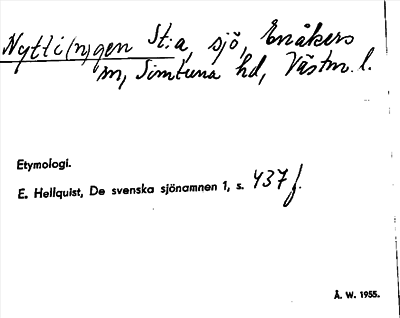 Nytti(n)gen St:a, sjö, Enåkers
m, Simtuna hd, Västm. l.
Etymologi.
E. Hellquist, De svenska sjönamnen 1, s. 437 f.
Å. W. 1955.